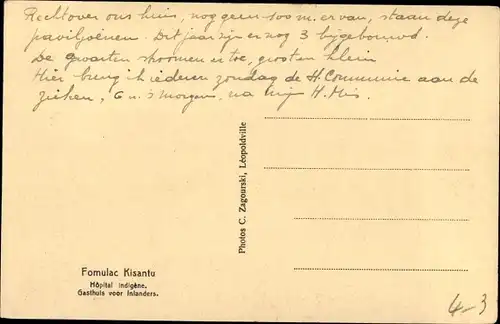 Rechtover ons huis, nog geen 100 m. er van, staan deze
paviljoenen. Dit jaar zijn er nog 3 bijgebouwd.
De zwarten stroomen er toe, groot en klein
Hier breng ik iederen zondag de H. Communie aan de
zieken, 6 u. 's morgens, na mijn H. Mis.
Photos C. Zagourski, Léopoldville
Fomulac Kisantu
Hôpital indigène.
Gasthuis voor Inlanders.
4-3